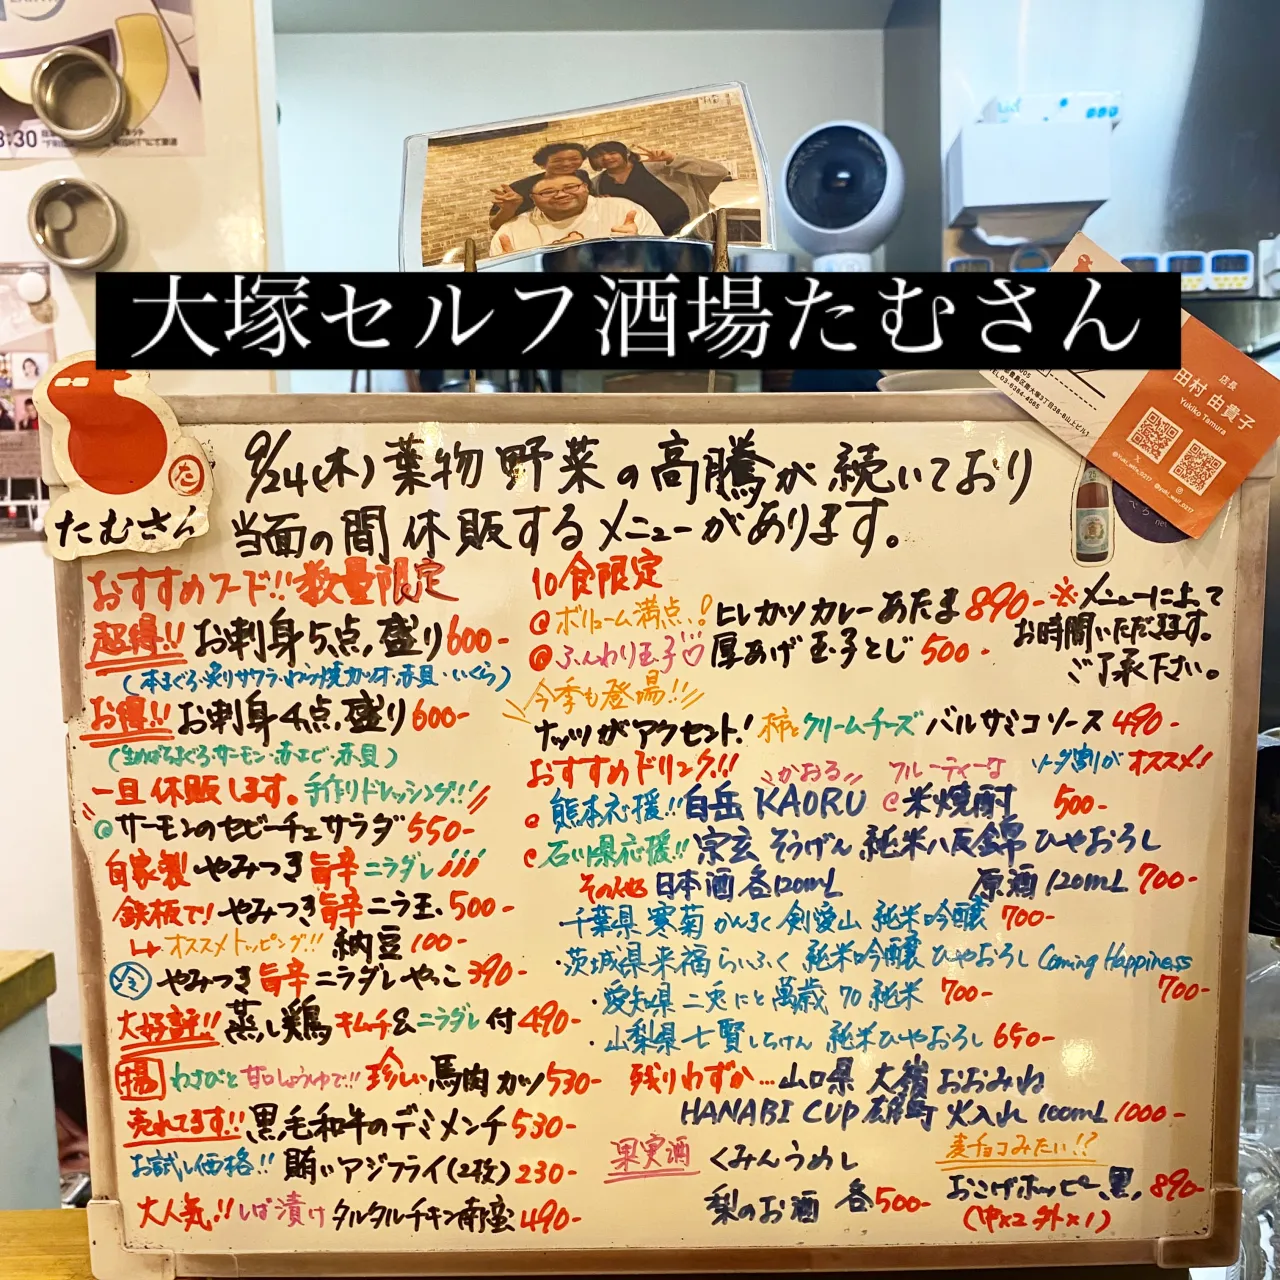 大塚セルフ酒場たむさん
店長
田村 由貴子
Yukiko Tamura
TEL.03-6384-4565
たむさん
9/24(木) 葉物野菜の高騰が続いており
当面の間休販するメニューがあります。
おすすめフード!! 数量限定
超得!! お刺身5点盛り 600-
(本まぐろ・炙りサワラ・わら焼カツオ・赤貝・いくら)
お得!! お刺身4点盛り 600-
(生めばちまぐろ・サーモン・赤エビ・赤貝)
一旦休販します。手作りドレッシング!!
サーモンのセビーチェサラダ 550-
自家製 やみつき旨辛ニラダレ!!!
鉄板で! やみつき旨辛ニラ玉 500-
オススメトッピング!! 納豆 100-
冷 やみつき旨辛ニラダレやっこ 390-
大好評!! 蒸し鶏 キムチ&ニラダレ付 490-
揚 わさびと甘口しょうゆで!! 珍しい馬肉カツ 530-
売れてます!! 黒毛和牛のデミメンチ 530-
お試し価格!! 賄いアジフライ(2枚) 230-
大人気!! しば漬けタルタルチキン南蛮 490-
10食限定
@ボリューム満点! ヒレカツカレーあたま 890-
@ふんわり玉子♡ 厚あげ玉子とじ 500-
※メニューによって
お時間いただきます。
ご了承下さい。
今季も登場!!
ナッツがアクセント! 柿とクリームチーズ バルサミコソース 490-
おすすめドリンク!!!
かおる フルーティーな ソーダ割がオススメ!
熊本応援!! 白岳 KAORU @米焼酎 500-
石川県応援!! 宗玄 そうげん 純米八反錦 ひやおろし
その他 日本酒 各120mL 原酒 120mL 700-
千葉県 寒菊 かんぎく 剣愛山 純米吟醸 700-
・茨城県 来福 らいふく 純米吟醸 ひやおろし Coming Happiness
700-
・愛知県 二兎 にと 萬歳 70 純米 700-
・山梨県 七賢 しちけん 純米ひやおろし 650-
残りわずか… 山口県 大嶺 おおみね
HANABI CUP 雄町 火入れ 100mL 1000-
果実酒 くみんうめし
梨のお酒 各500-
麦チョコみたい!?
おこげホッピー、黒、 890-
(中×2 外×1)